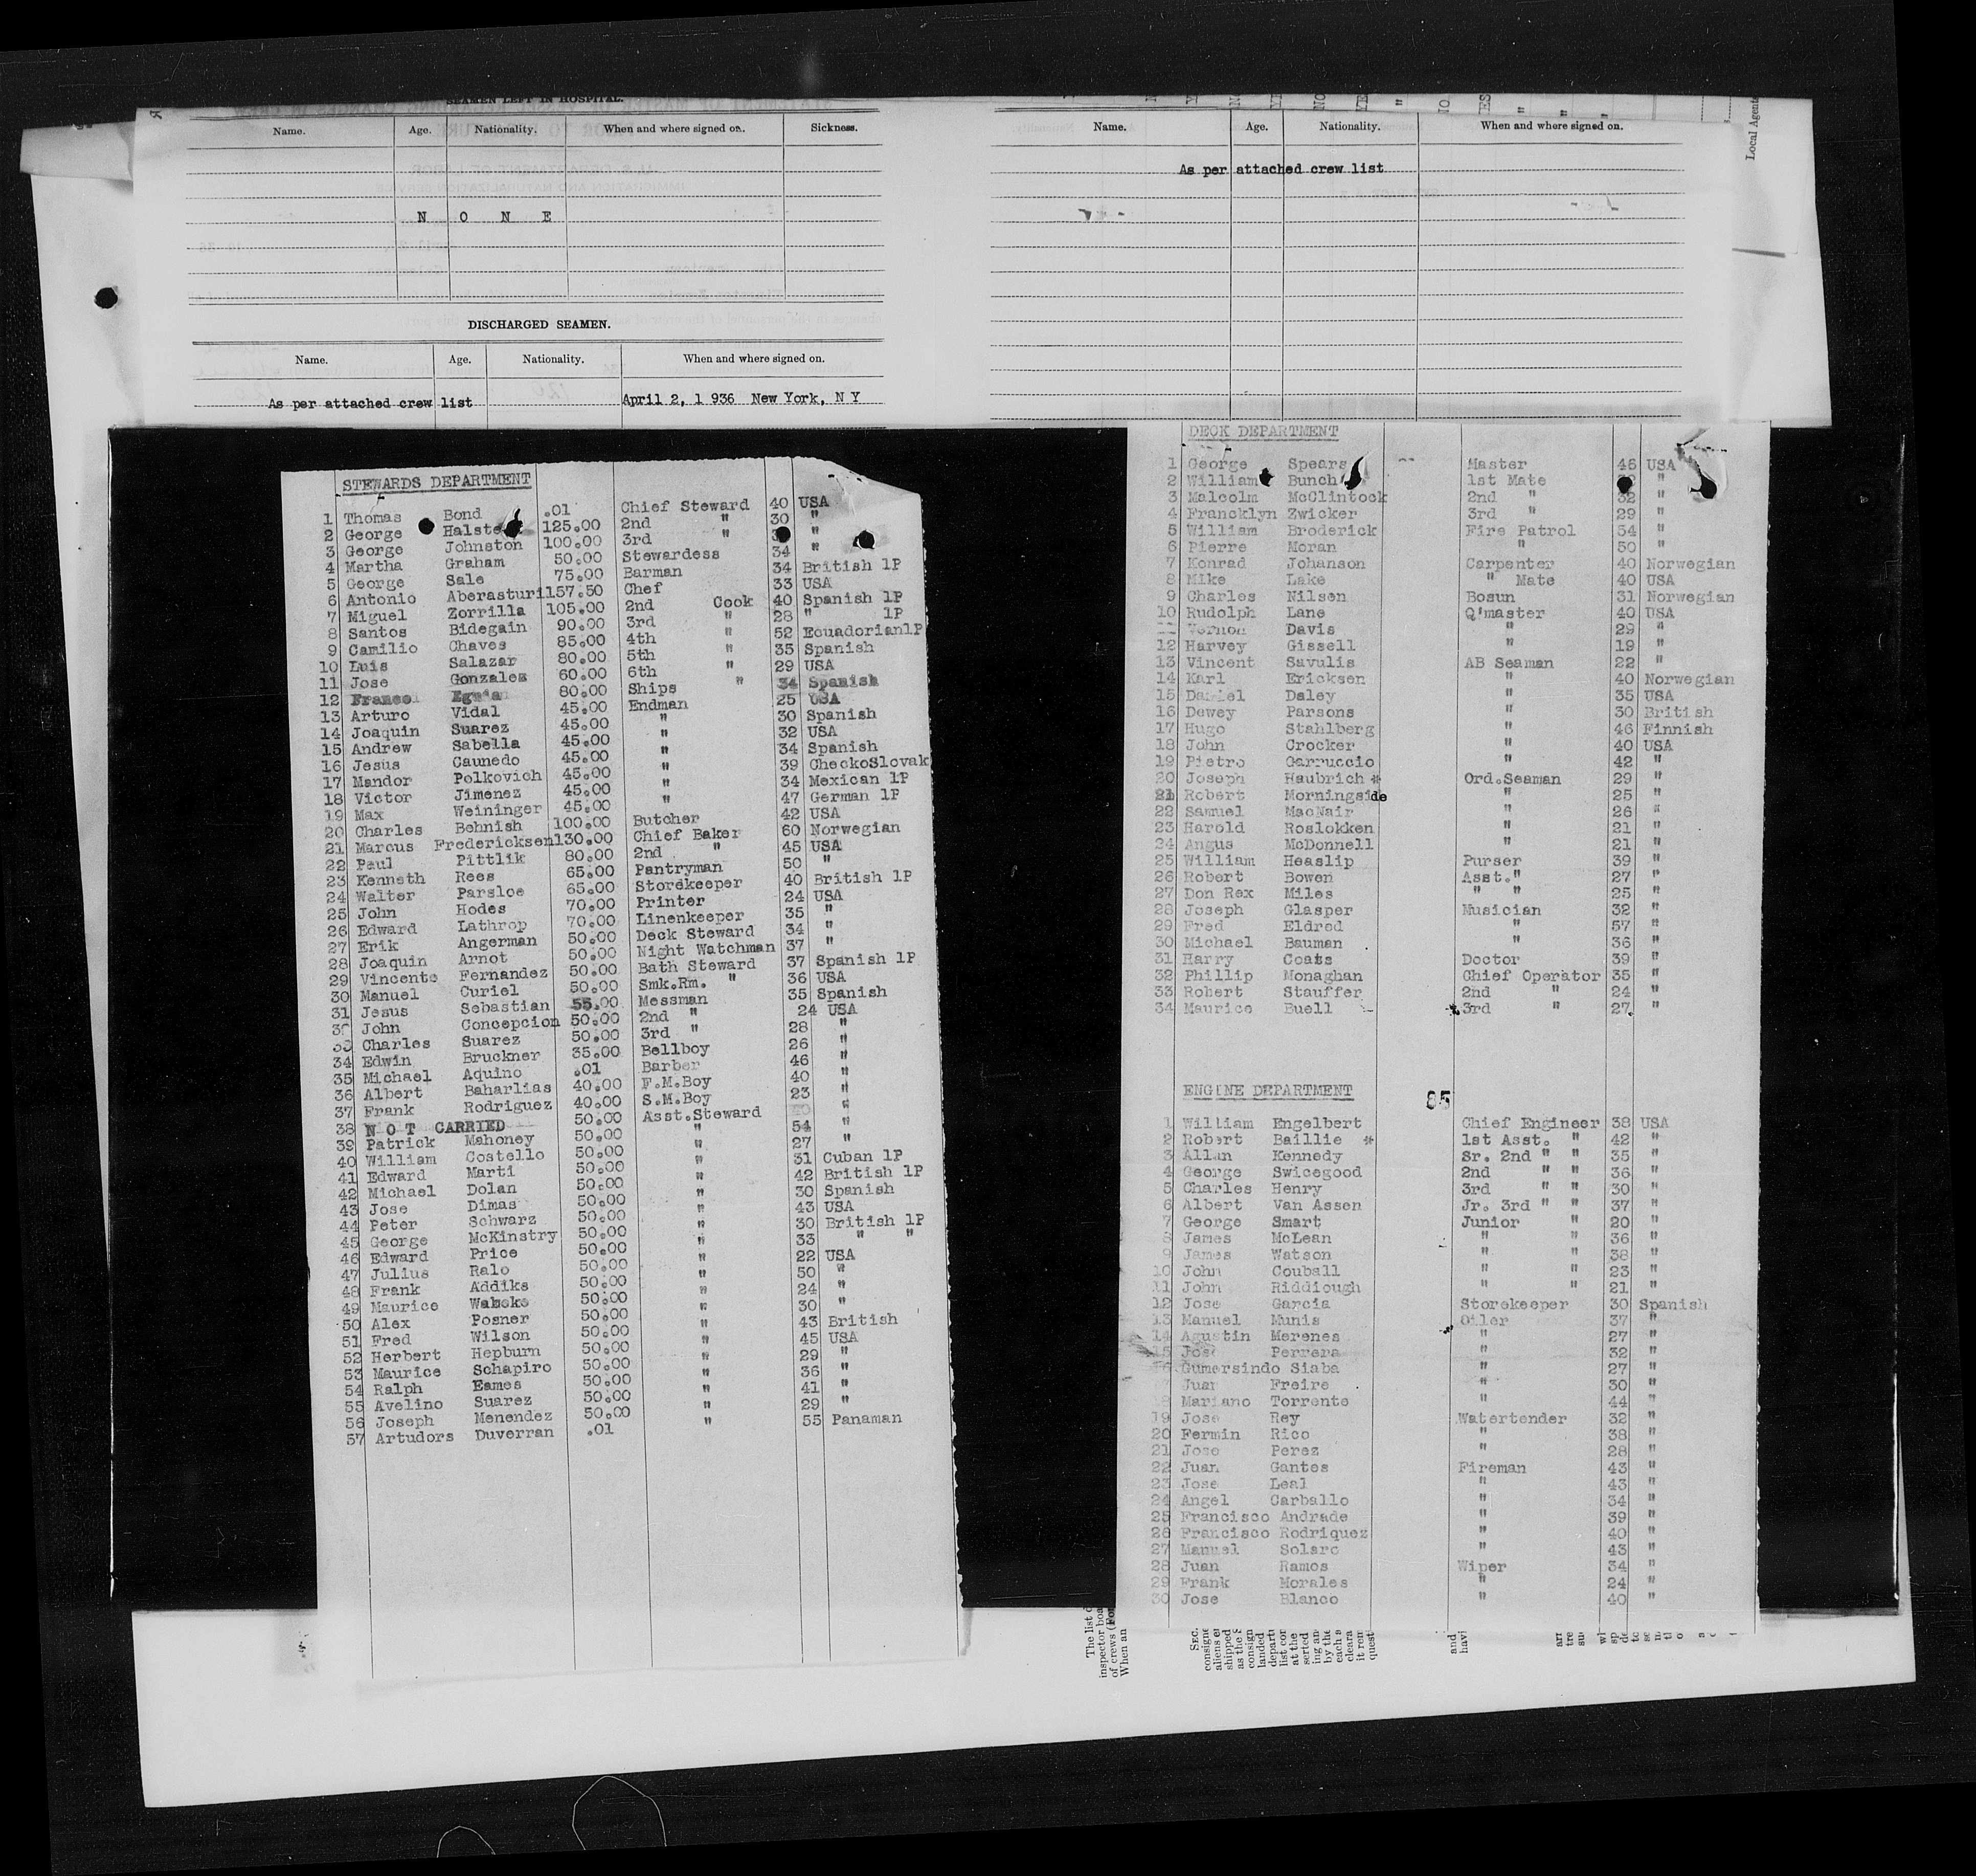 SEAMEN LEFT IN HOSPITAL.
Name. Age. Nationality. When and where signed on. Sickness.
N O N E
DISCHARGED SEAMEN.
Name. Age. Nationality. When and where signed on.
As per attached crew list April 2, 1 936 New York, N Y
Name. Age. Nationality. When and where signed on.
As per attached crew list
Local Agents
STEWARDS DEPARTMENT
1 Thomas Bond .01 Chief Steward 40 USA
2 George 125.00 2nd " 30 "
3 George Johnston 100.00 3rd " "
4 Martha Graham 50.00 Stewardess 34 "
5 George Sale 75.00 Barman 34 British 1P
6 Antonio Aberasturi 157.50 Chef 33 USA
7 Miguel Zorrilla 105.00 2nd Cook 40 Spanish 1P
8 Santos Bidegain 90.00 3rd " 28 " 1P
9 Camilio Chaves 85.00 4th " 52 Ecuadorian 1P
10 Luis Salazar 80.00 5th " 35 Spanish
11 Jose Gonzalez 60.00 6th " 29 USA
12 80.00 Ships " 34 Spanish
13 Arturo Vidal 45.00 Endman 25 USA
14 Joaquin Suarez 45.00 " 30 Spanish
15 Andrew Sabella 45.00 " 32 USA
16 Jesus Caunedo 45.00 " 34 Spanish
17 Mandor Polkovich 45.00 " 39 CheckoSlovak
18 Victor Jimenez 45.00 " 34 Mexican 1P
19 Max Weininger 45.00 " 47 German 1P
20 Charles Behnish 100.00 Butcher 42 USA
21 Marcus Fredericksen 130.00 Chief Baker 60 Norwegian
22 Paul Pittlik 80.00 2nd " 45 USA
23 Kenneth Rees 65.00 Pantryman 50 "
24 Walter Parsloe 65.00 Storekeeper 40 British 1P
25 John Hodes 70.00 Printer 24 USA
26 Edward Lathrop 70.00 Linenkeeper 35 "
27 Erik Angerman 50.00 Deck Steward 34 "
28 Joaquin Arnot 50.00 Night Watchman 37 "
29 Vincente Fernandez 50.00 Bath Steward 37 Spanish 1P
30 Manuel Curiel 50.00 Smk.Rm. " 36 USA
31 Jesus Sebastian 55.00 Messman 35 Spanish
John Concepcion 50.00 2nd " 24 USA
33 Charles Suarez 50.00 3rd " 28 "
34 Edwin Bruckner 35.00 Bellboy 26 "
35 Michael Aquino .01 Barber 46 "
36 Albert Baharlias 40.00 F.M.Boy 40 "
37 Frank Rodriguez 40.00 S.M.Boy 23 "
38 N O T CARRIED 50.00 Asst.Steward "
39 Patrick Mahoney 50.00 " 54 "
40 William Costello 50.00 " 27 "
41 Edward Marti 50.00 " 31 Cuban 1P
42 Michael Dolan 50.00 " 42 British 1P
43 Jose Dimas 50.00 " 30 Spanish
44 Peter Schwarz 50.00 " 43 USA
45 George McKinstry 50.00 " 30 British 1P
46 Edward Price 50.00 " 33 " "
47 Julius Ralo 50.00 " 22 USA
48 Frank Addiks 50.00 " 50 "
49 Maurice 50.00 " 24 "
50 Alex Posner 50.00 " 30 "
51 Fred Wilson 50.00 " 43 British
52 Herbert Hepburn 50.00 " 45 USA
53 Maurice Schapiro 50.00 " 29 "
54 Ralph Eames 50.00 " 36 "
55 Avelino Suarez 50.00 " 41 "
56 Joseph Menendez 50.00 " 29 "
57 Artudors Duverran .01 " 55 Panaman
DECK DEPARTMENT
1 George Spears Master 46 USA
2 William Bunch 1st Mate "
3 Malcolm McClintock 2nd " 32 "
4 Francklyn Zwicker 3rd " 29 "
5 William Broderick Fire Patrol 54 "
6 Pierre Moran " 50 "
7 Konrad Johanson Carpenter 40 Norwegian
8 Mike Lake " Mate 40 USA
9 Charles Nilsen Bosun 31 Norwegian
10 Rudolph Lane Q'master 40 USA
Vernon Davis " 29 "
12 Harvey Gissell " 19 "
13 Vincent Savulis AB Seaman 22 "
14 Karl Ericksen " 40 Norwegian
15 Daniel Daley " 35 USA
16 Dewey Parsons " 30 British
17 Hugo Stahlberg " 46 Finnish
18 John Crocker " 40 USA
19 Pietro Garruccio " 42 "
20 Joseph Haubrich * Ord.Seaman 29 "
21 Robert Morningside " 25 "
22 Samuel MacNair " 26 "
23 Harold Roslokken " 21 "
24 Angus McDonnell " 21 "
25 William Heaslip Purser 39 "
26 Robert Bowen Asst." 27 "
27 Don Rex Miles " " 25 "
28 Joseph Glasper Musician 32 "
29 Fred Eldred " 57 "
30 Michael Bauman " 36 "
31 Harry Coats Doctor 39 "
32 Phillip Monaghan Chief Operator 35 "
33 Robert Stauffer 2nd " 24 "
34 Maurice Buell 3rd " 27 "
ENGINE DEPARTMENT 85
1 William Engelbert Chief Engineer 38 USA
2 Robert Baillie * 1st Asst. " 42 "
3 Allan Kennedy Sr. 2nd " " 35 "
4 George Swicegood 2nd " " 36 "
5 Charles Henry 3rd " " 30 "
6 Albert Van Assen Jr. 3rd " " 37 "
7 George Smart Junior " 20 "
8 James McLean " " 36 "
9 James Watson " " 38 "
10 John Couball " " 23 "
11 John Riddiough " " 21 "
12 Jose Garcia Storekeeper 30 Spanish
13 Manuel Munis Oiler 37 "
14 Agustin Merenes " 27 "
15 Jose Perrera " 32 "
16 Gumersindo Siaba " 27 "
Juan Freire " 30 "
18 Mariano Torrente " 44 "
19 Jose Rey Watertender 32 "
20 Fermin Rico " 38 "
21 Jose Perez " 28 "
22 Juan Gantes Fireman 43 "
23 Jose Leal " 43 "
24 Angel Carballo " 34 "
25 Francisco Andrade " 39 "
26 Francisco Rodriquez " 40 "
27 Manuel " 43 "
28 Juan Ramos Wiper 34 "
29 Frank Morales " 24 "
30 Jose Blanco " 40 "